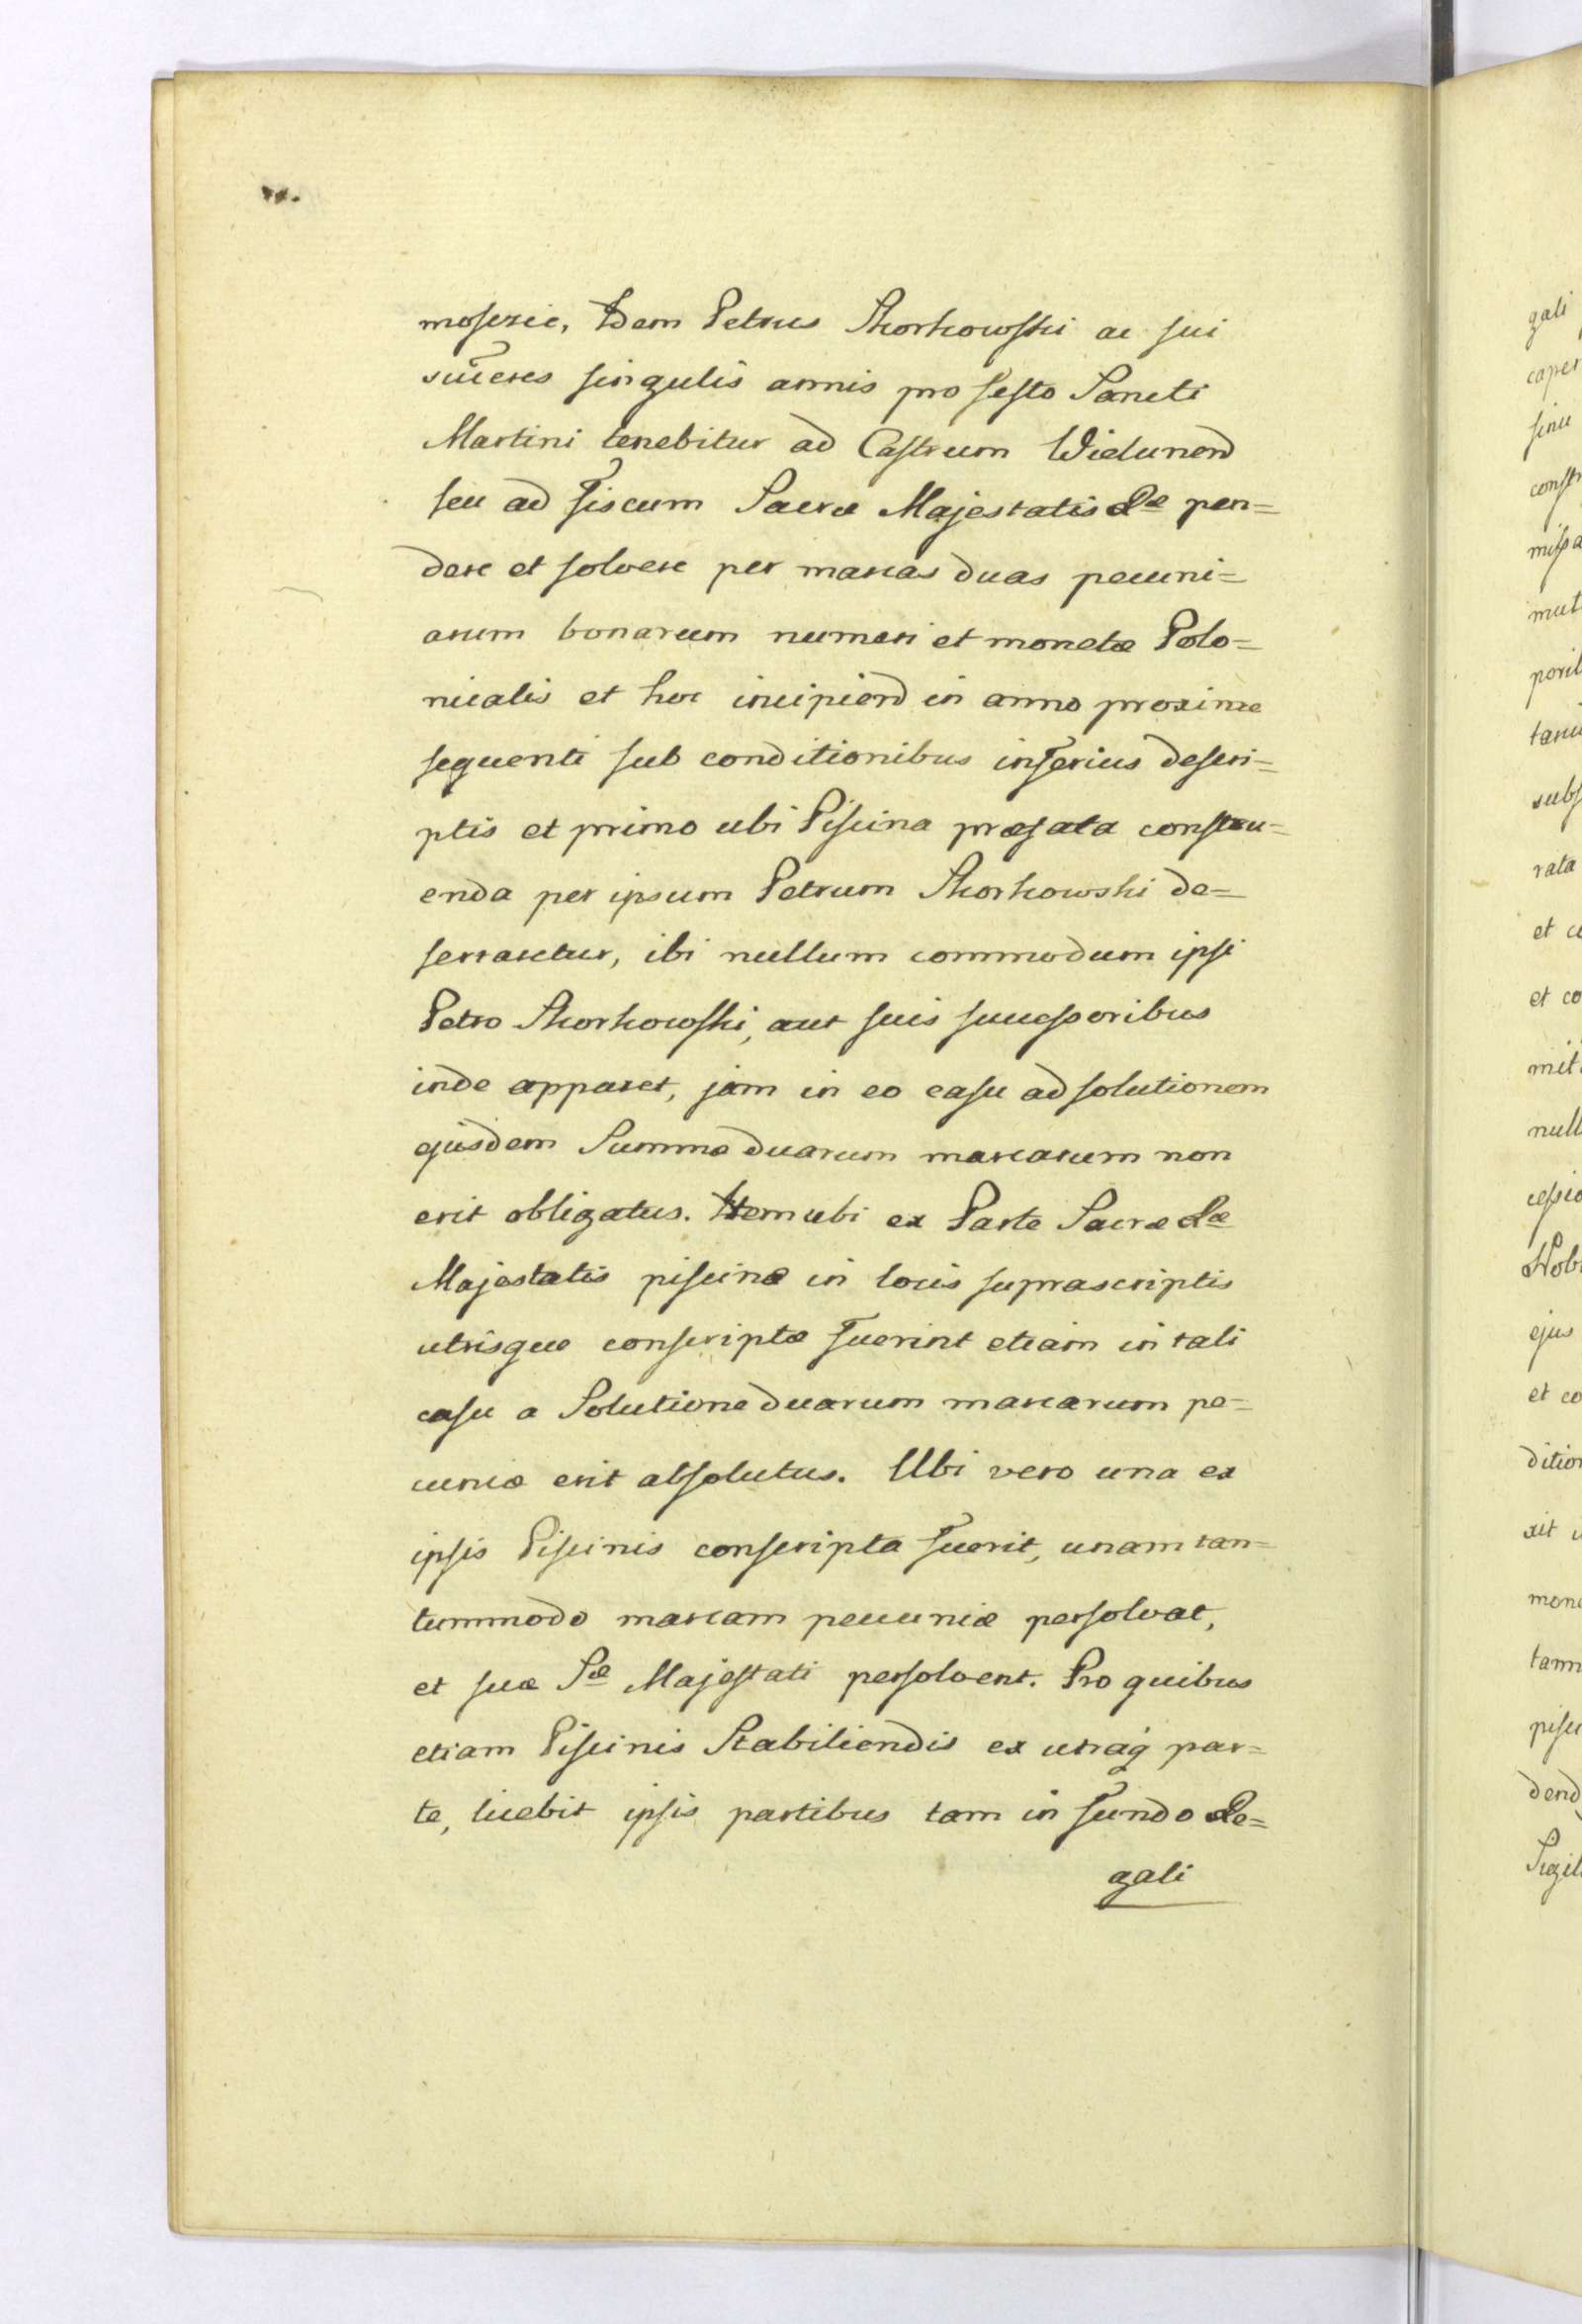 moserie, Idem Petrus Skorkowski ac sui
succeres singulis annis pro festo Sancti
Martini tenebitur ad Castrum Wielunend
seu ad fiscum Sacræ Majestatis Ræ pen=
dere et solvere per marcas duas pecuni=
arum bonarum numeri et monetæ Polo=
nicalis et hoc incipiend in anno proxime
sequenti sub conditionibus inferius descri=
ptis et primo ubi Piscina præfata constru=
enda per ipsum Petrum Skorkowski de=
serraretur, ibi nullum commodum ipsi
Petro Skorkowski, aut suis successoribus
inde apparet, jam in eo casu ad solutionem
ejusdem Summæ duarum marcarum non
erit obligatus. Item ubi ex Parte Sacræ Ræ
Majestatis piscinæ in locis suprascriptis
utrisque conscriptæ fuerint etiam in tali
casu a Solutione duarum marcarum pe=
cuniæ erit absolutus. Ubi vero una ex
ipsis Piscinis conscripta fuerit, unam tan=
tummodo marcam pecuniæ persolvat,
et suæ Sæ Majestati persolvent. Pro quibus
etiam Piscinis Stabiliendis ex utraq par=
te, licebit ipsis partibus tam in fundo Re=
gali
gali
caper
sinu
constr
missa
mut
poril
subs
rata
et co
mit
null
cessio
Nob
ejus
et co
dition
xit
mone
tam
pisci
dend
Sigil